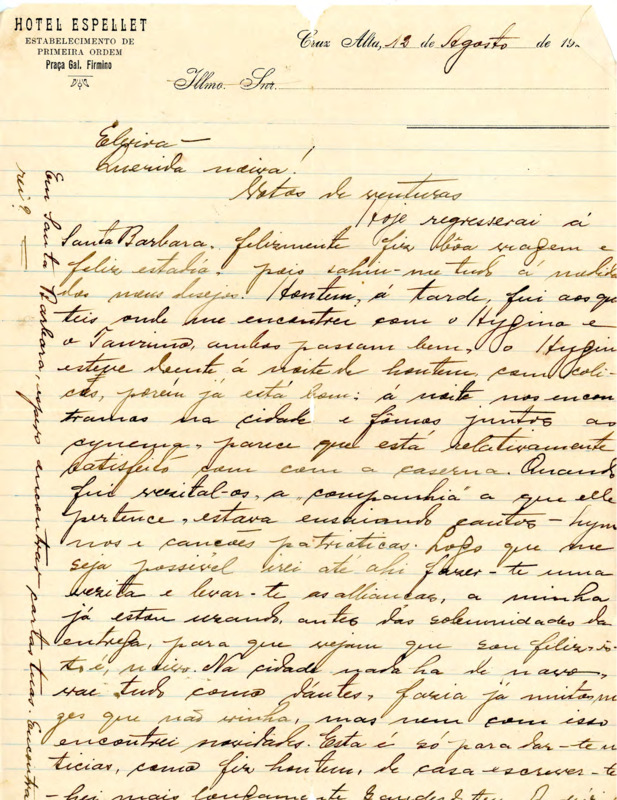 HOTEL ESPELLET
ESTABELECIMENTO DE
PRIMEIRA ORDEM
Praça Gal. Firmino
Cruz Alta, 12 de Agosto de 19
Illmo. Snr.
Elvira —
Querida noiva!
Votos de venturas
Hoje regresserai á
Santa Barbara. felizmente fiz bôa viagem e
feliz estadia. pois sahiu-me tudo á medida
dos meus desejos. Hontem, á tarde, fui aos quar
teis onde me encontrei com o Hygino e
o Taurino, ambos passam bem, o Hygin
esteve doente á noite de hontem, com coli
cas, porém já está bom: á noite nos encon
tramos na cidade e fômos juntos ao
cynema. parece que está relativamente
satisfeito com com a caserna. Quando
fui visital-os, a companhiá a que elle
pertence, estava ensaiando cantos - hym
nos e canções patrioticas. Logo que me
seja possivel irei até ahi fazer-te uma
vizita e levar-te as allianças, a minha
já estou uzando, antes das solemnidades da
entrega, para que vejam que sou feliz-is-
to é, noivo. Na cidade nada ha de novo,
vae tudo como d'antes, fazia já muitos me
zes que não vinha, mas nem com isso
encontrei novidades. Esta é só para dar-te no
ticias, como fiz hontem, de casa escrever-te-
hei mais longamente
Em Santa Barbara, espero encontrar cartas tuas. Encontra
rei? —